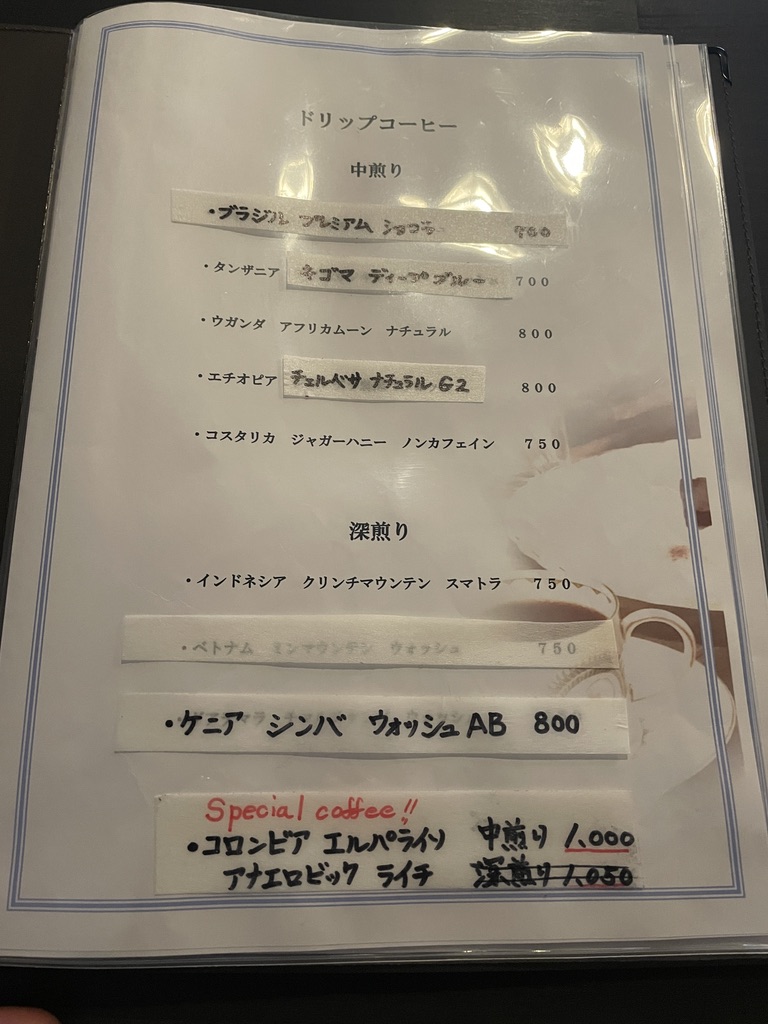 ドリップコーヒー
中煎り
・ブラジル プレミアム ショコラ
・タンザニア ネゴマ ディープブルー 700
・ウガンダ アフリカムーン ナチュラル 800
・エチオピア チェルベサ ナチュラル G2 800
・コスタリカ ジャガーハニー ノンカフェイン 750
深煎り
・インドネシア クリンチマウンテン スマトラ 750
・ベトナム ミンマウンテン ウォッシュ 750
・ケニア シンバ ウォッシュ AB 800
Special coffee!!
・コロンビア エルパライソ 中煎り 1,000
アナエロビック ライチ 深煎り 1,050